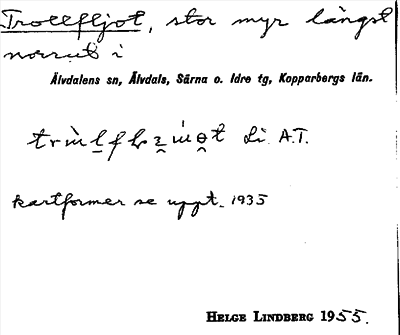 Trollfljot, stor myr längst
norrut i
Älvdalens sn, Älvdals, Särna o. Idre tg, Kopparbergs län.
Li. A.T.
kartformer se uppt. 1935
HELGE LINDBERG 1955.